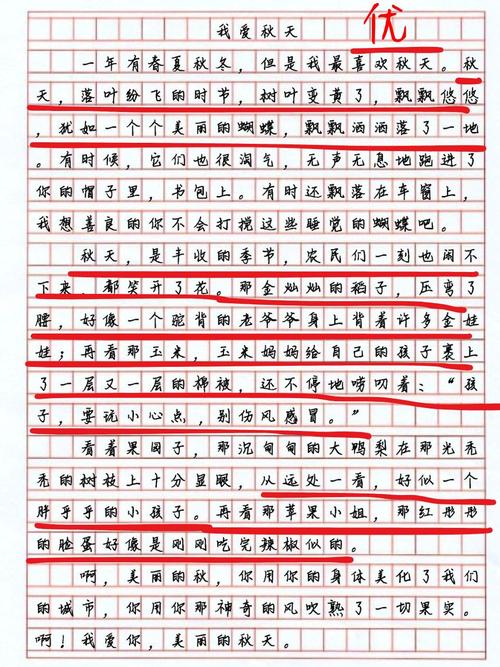 我爱秋天
优
一年有春夏秋冬，但是我最喜欢秋天。秋
天，落叶纷飞的时节，树叶变黄了，飘飘悠悠
，犹如一个个美丽的蝴蝶，飘飘洒洒落了一地
。有时候，它们也很淘气，无声无息地跑进了
你的帽子里，书包上。有时还飘落在车窗上，
我想善良的你不会打搅这些睡觉的蝴蝶吧。
秋天，是丰收的季节，农民们一刻也闲不
下来，都笑开了花。那金灿灿的稻子，压弯了
腰，好像一个驼背的老爷爷身上背着许多金娃
娃；再看那玉米，玉米妈妈给自己的孩子裹上
了一层又一层的棉被，还不停地唠叨着：“孩
子，要说小心点，别伤风感冒。”
看着果园子，那沉甸甸的大鸭梨在那光秃
秃的树枝上十分显眼，从远处一看，好似一个
胖乎乎的小孩子。再看那苹果小姐，那红彤彤
的脸蛋好像是刚刚吃完辣椒似的。
啊，美丽的秋，你用你的身体美化了我们
的城市，你用你那神奇的风吹熟了一切果实。
啊！我爱你，美丽的秋天。